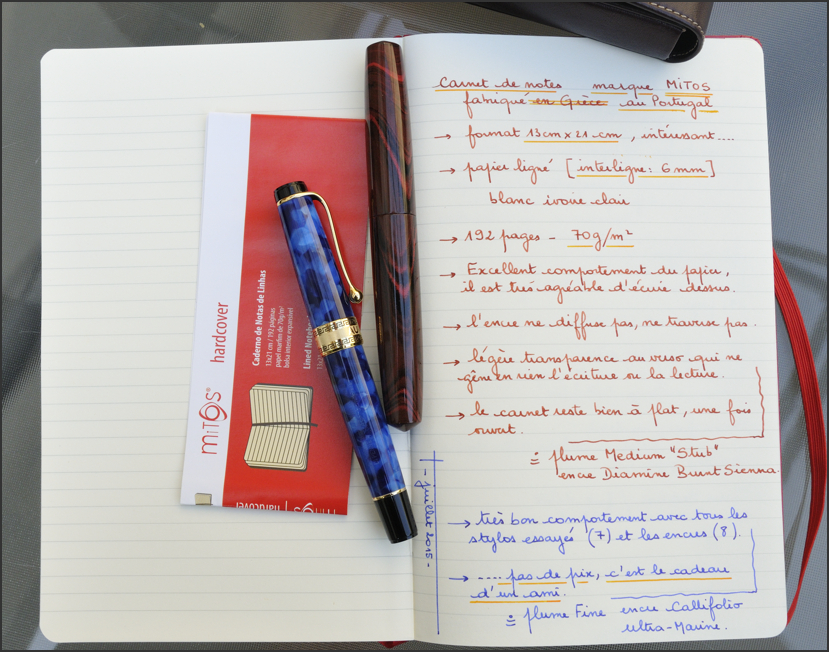 Carnet de notes marque MiTOS
fabriqué en Grèce au Portugal
→ format 13cm x 21 cm, intéressant....
→ papier ligné [interligne: 6mm]
blanc ivoire clair
→ 192 pages - 70g/m²
→ Excellent comportement du papier,
il est très agréable d'écrire dessus.
→ l'encre ne diffuse pas, ne traverse pas.
→ légère transparence au verso qui ne
gêne en rien l'écriture ou la lecture.
→ le carnet reste bien à plat, une fois
ouvert.
= plume Medium "Stub"
encre Diamine Burnt Sienna.
- juillet 2015 -
→ très bon comportement avec tous les
stylos essayés (7) et les encres (8).
→ .... pas de prix, c'est le cadeau
d'un ami.
= plume Fine encre Callifolio
ultra-Marine.
MiTOS®
hardcover
Caderno de Notas de Linhas
13x21 cm / 192 páginas
papel marfim de 70g/m²
bolsa interior expansível
Lined Noteb
MiTOS | hardcover